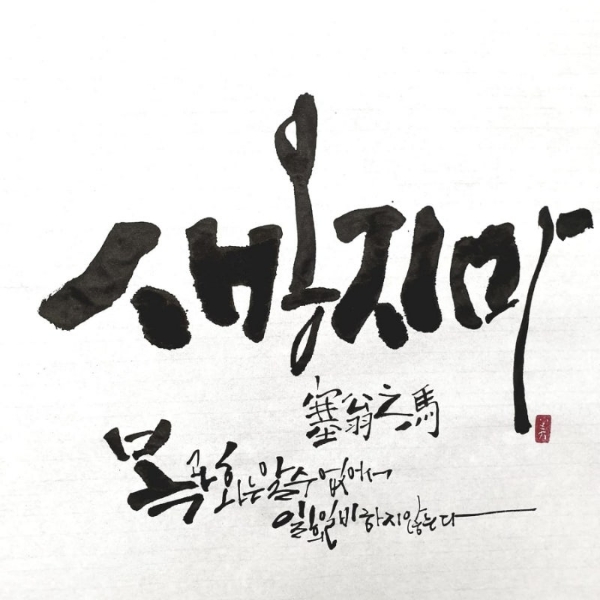 새옹지마
塞翁之馬
복과 화는 알 수 없어서
일희일비하지 않는다